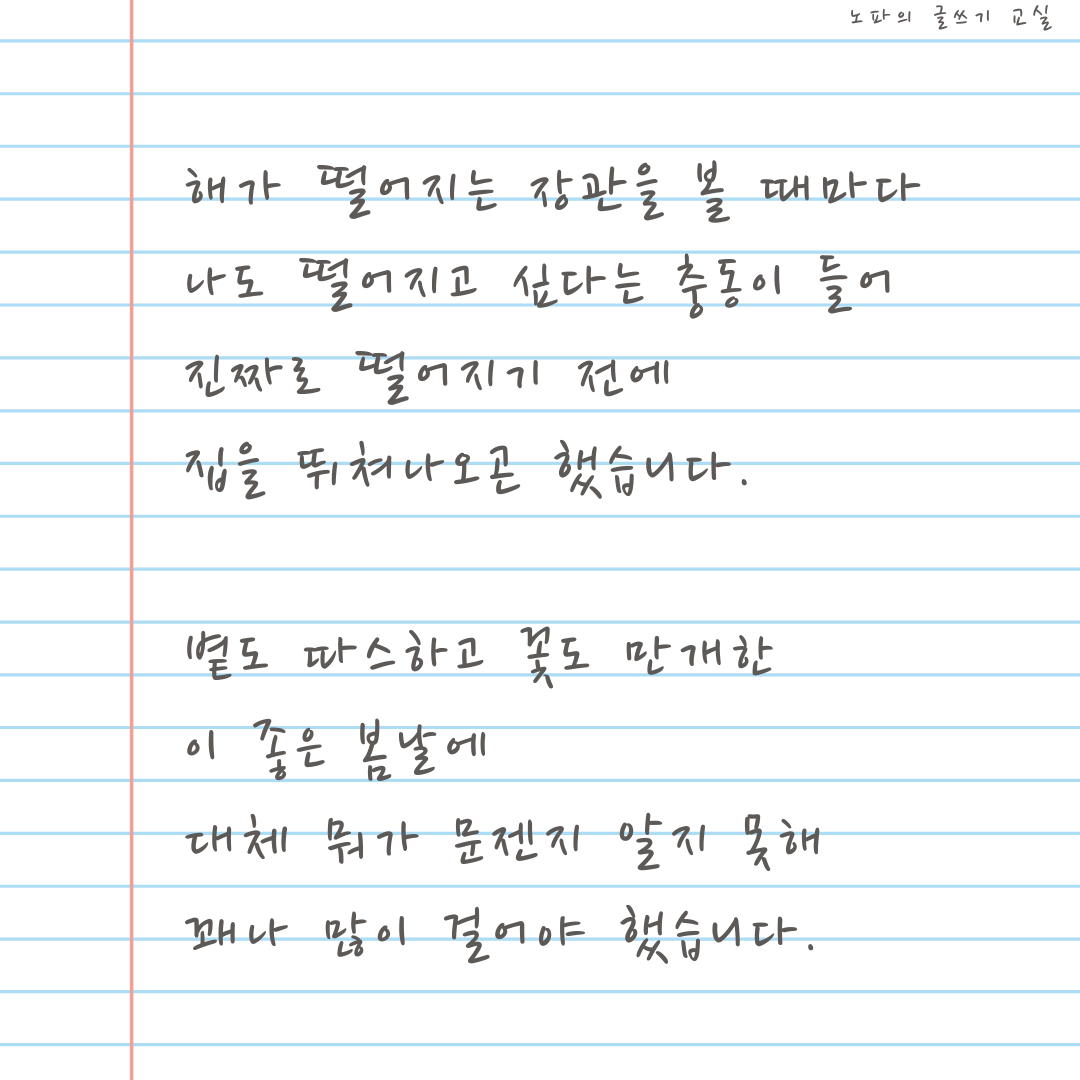 노파의 글쓰기 교실
해가 떨어지는 장관을 볼 때마다
나도 떨어지고 싶다는 충동이 들어
진짜로 떨어지기 전에
집을 뛰쳐나오곤 했습니다.
볕도 따스하고 꽃도 만개한
이 좋은 봄날에
대체 뭐가 문젠지 알지 못해
꽤나 많이 걸어야 했습니다.